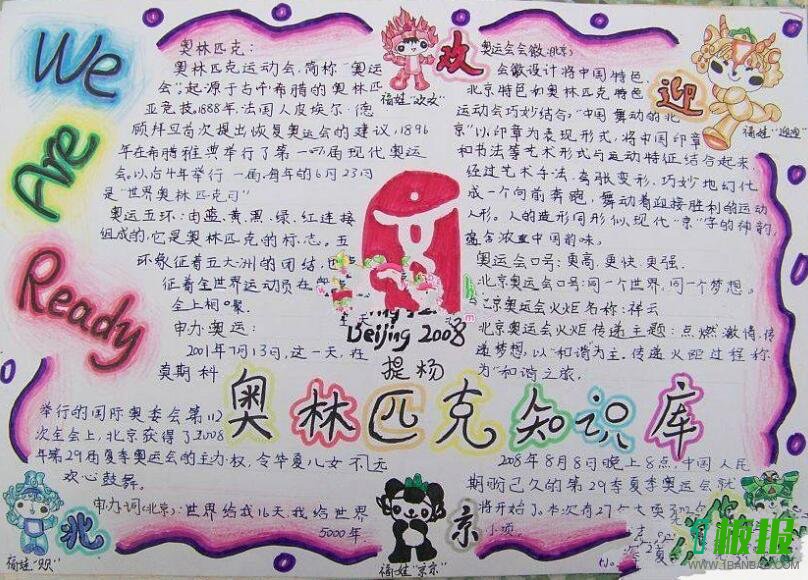 We
Are
Ready
奥林匹克:
奥林匹克运动会,简称"奥运
会",起源于古希腊的奥林匹
亚竞技.1888年法国人皮埃尔·德
顾拜旦首次提出恢复奥运会的建议,1896
年在希腊雅典举行了第一届现代奥运
会,以后四年举行一届,每年的6月23日
是"世界奥林匹克日"
奥运五环:由蓝、黄、黑、绿、红连接
组成的,它是奥林匹克的标志。五
环象征着五大洲的团结,也
征着全世界运动员在
会上相聚.
申办奥运:
2001年7月13日,这一天,在
莫斯科
举行的国际奥委会第112
次全会上,北京获得了2008
年第29届夏季奥运会的主办权,令华夏儿女不
欢心鼓舞。
申办词(北京):世界给我几天,我给世界
5000年
欢
福娃"欢欢"
迎
福娃"迎迎"
北
福娃"贝贝"
京
福娃"京京"
Beijing 2008
提杨
奥林匹克知识库
奥运会会徽(北京):
会徽设计将中国特色,
北京特色和奥林匹克特色
运动会巧妙结合。"中国舞动的北
京"以印章为表现形式,将中国印章
和书法等艺术形式与运动特征结合起来,
经过艺术手法,夸张变形,巧妙地幻化
成一个向前奔跑,舞动着迎接胜利的运动
人形。人的造形同形似现代"京"字的神韵,
蕴含浓重中国韵味。
奥运会口号:更高,更快,更强.
北京奥运会口号:同一个世界,同一个梦想。
北京奥运会火炬名称:祥云
北京奥运会火炬传递主题:点燃激情,传
递梦想,以"和谐"为主,传递火炬过程称
为"和谐之旅.
208年8月8日晚上8点,中国人民
期盼已久的第29季夏季奥运会就
将开始了。本次有27个大项,302个
小项。
板报
WWW.1BANBAO.COM